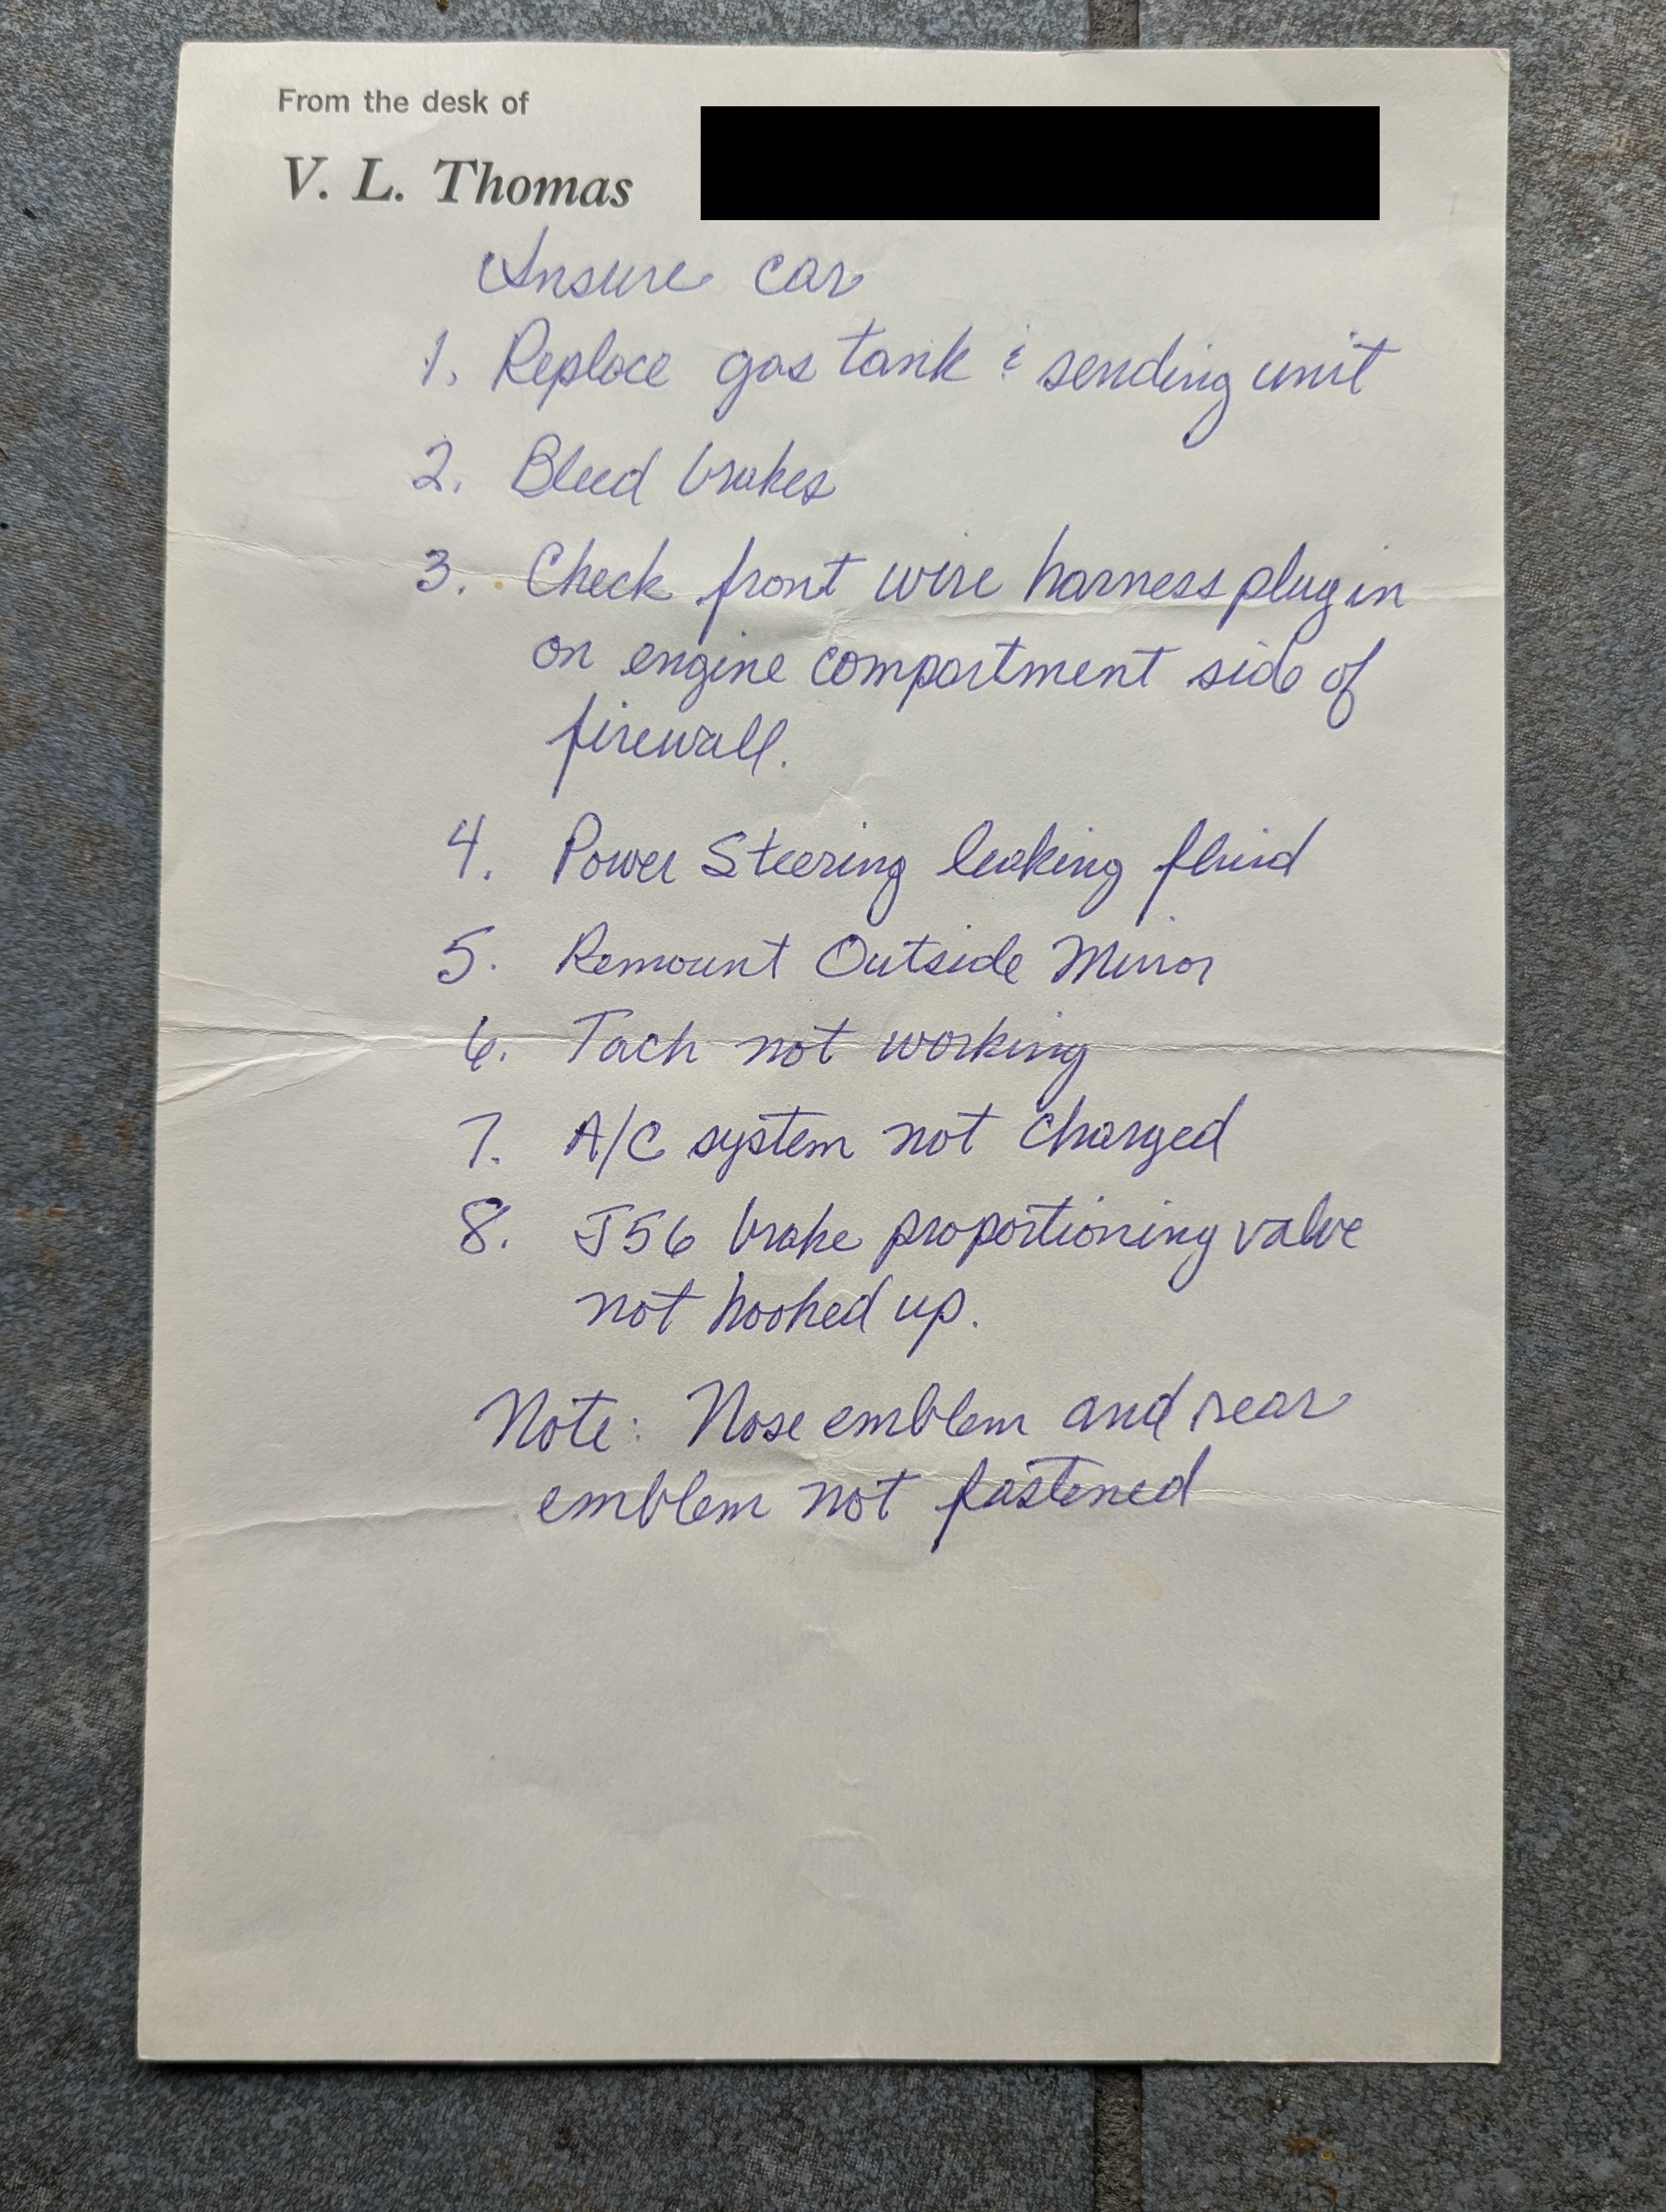 From the desk of
V. L. Thomas
Insure car
1. Replace gas tank & sending unit
2. Bleed brakes
3. Check front wire harness plug in
on engine compartment side of
firewall.
4. Power Steering leaking fluid
5. Remount Outside Mirror
6. Tach not working
7. A/C system not charged
8. J56 brake proportioning valve
not hooked up.
Note: Nose emblem and rear
emblem not fastened